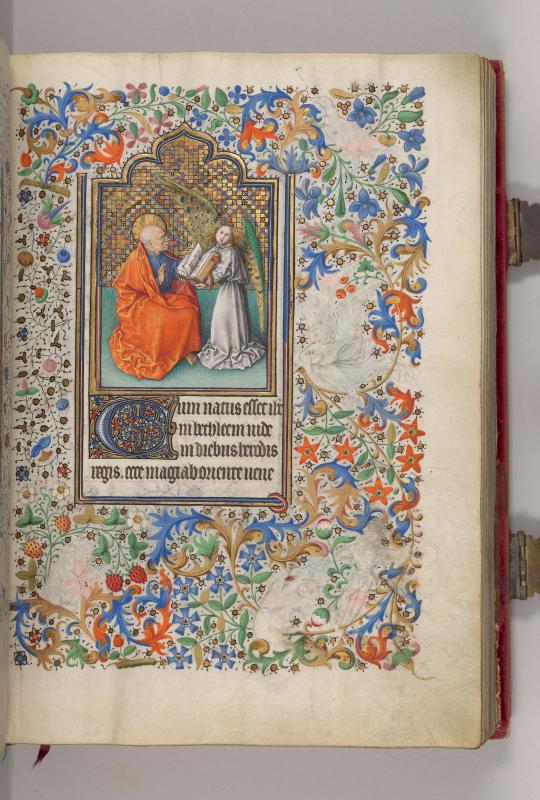 Cum natus esset ihc
in bethleem iude
in diebus herodis
regis. ecce magi ab oriente uene